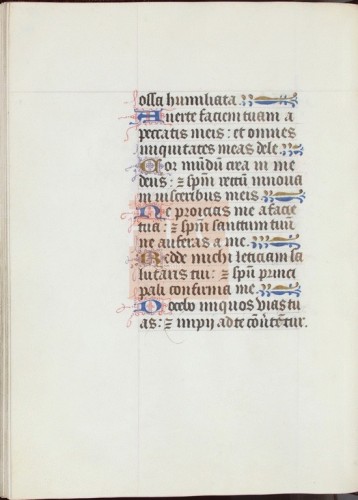 ossa humiliata.
Auerte faciem tuam a
peccatis meis: et omnes
iniquitates meas dele.
Cor mūdū crea in me
deus: ⁊ spm̄ rectū innoua
in uisceribus meis.
Ne proicias me a facie
tua: ⁊ spm̄ sanctum tuū
ne auferas a me.
Redde michi leticiam sa
lutaris tui: ⁊ spū princi
pali confirma me.
Docebo iniquos uias tu
as: ⁊ impij ad te cōuertētur.